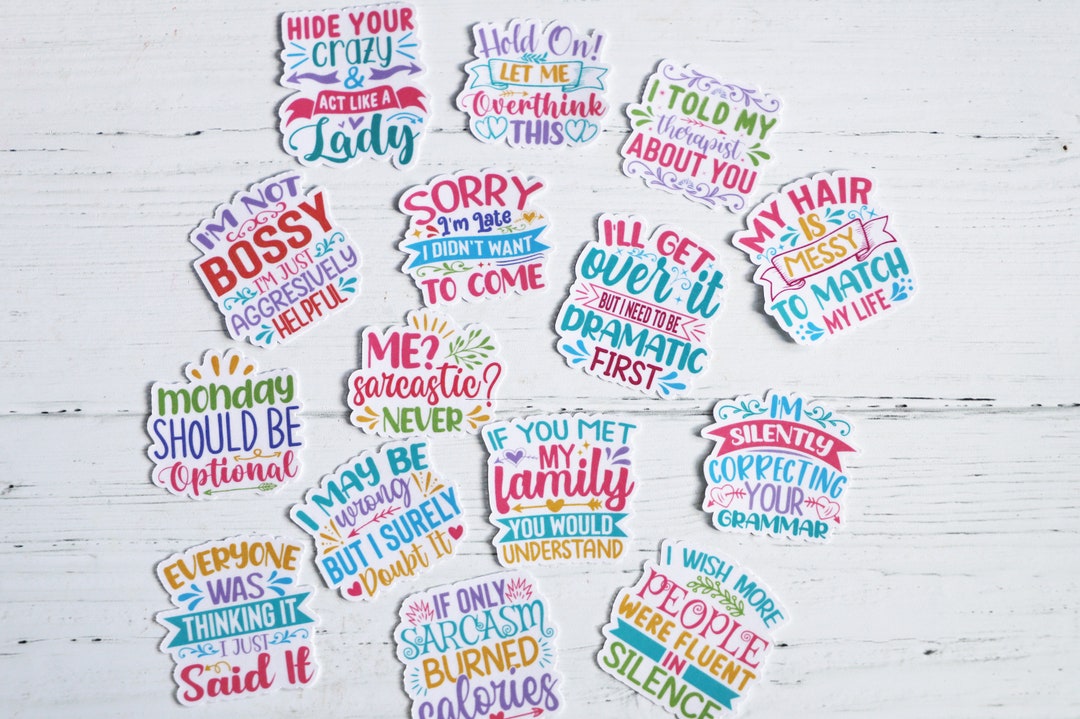 HIDE YOUR
crazy
&
ACT LIKE A
Lady
Hold On!
LET ME
Overthink
THIS
I TOLD MY
therapist.
ABOUT YOU
I'M NOT
BOSSY
I'M JUST
AGGRESIVELY
HELPFUL
SORRY
I'm Late
I DIDN'T WANT
TO COME
I'LL GET
over it
BUT I NEED TO BE
DRAMATIC
FIRST
MY HAIR
IS
MESSY
TO MATCH
MY LIFE
ME?
sarcastic?
NEVER
monday
SHOULD BE
Optional
I MAY BE
wrong
BUT I SURELY
Doubt It
IF YOU MET
MY
family
YOU WOULD
UNDERSTAND
IM
SILENTLY
CORRECTING
YOUR
GRAMMAR
EVERYONE
WAS
THINKING IT
I JUST
Said It
IF ONLY
SARCASM
BURNED
calories
I WISH MORE
PEOPLE
WERE FLUENT
IN
SILENCE